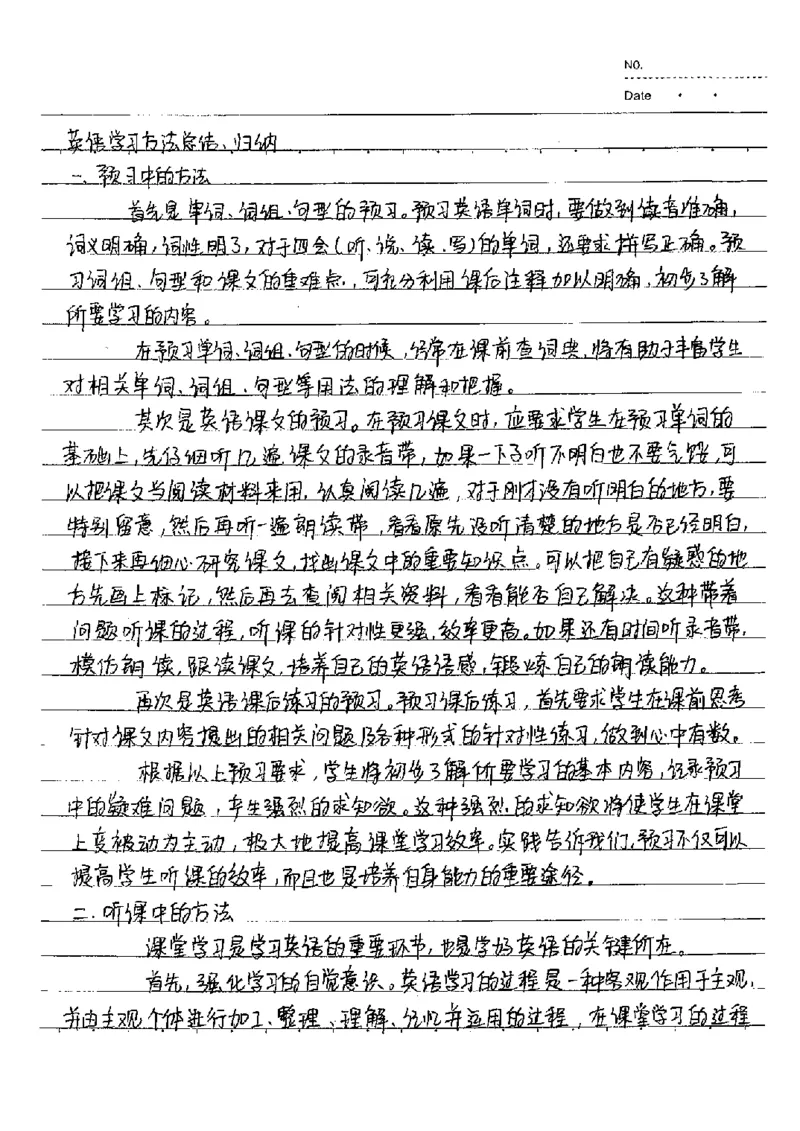 NO.
Date
英语学习方法总结、归纳
一、预习中的方法
首先是单词、词组、句型的预习。预习英语单词时,要做到读音准确,
词义明确,词性明了,对于四会(听、说、读、写)的单词,还要求拼写正确。预
习词组、句型和课文的重难点,可充分利用课后注释加以明确,初步了解
所要学习的内容。
在预习单词、词组、句型的时候,经常在课前查词典,将有助于丰富学生
对相关单词、词组、句型等用法的理解和把握。
其次是英语课文的预习。在预习课文时,应要求学生在预习单词的
基础上,先仔细听几遍课文的录音带,如果一下子听不明白也不要气馁,可
以把课文当阅读材料来用,认真阅读几遍,对于刚才没有听明白的地方,要
特别留意,然后再听一遍朗读带,看看原先没听清楚的地方是否已经明白,
接下来再细心研究课文,找出课文中的重要知识点。可以把自己有疑惑的地
方先画上标记,然后再去查阅相关资料,看看能否自己解决。这种带着
问题听课的过程,听课的针对性更强,效率更高。如果还有时间听录音带,
模仿朗读,跟读课文,培养自己的英语语感,锻炼自己的朗读能力。
再次是英语课后练习的预习。预习课后练习,首先要求学生在课前思考
针对课文内容提出的相关问题及各种形式的针对性练习,做到心中有数。
根据以上预习要求,学生将初步了解所要学习的基本内容,记录预习
中的疑难问题,产生强烈的求知欲。这种强烈的求知欲将使学生在课堂
上变被动为主动,极大地提高课堂学习效率。实践告诉我们,预习不仅可以
提高学生听课的效率,而且也是培养自身能力的重要途径。
二、听课中的方法
课堂学习是学习英语的重要环节,也是学好英语的关键所在。
首先,强化学习的自觉意识。英语学习的过程是一种客观作用于主观,
并由主观个体进行加工、整理、理解、记忆并运用的过程,在课堂学习的过程